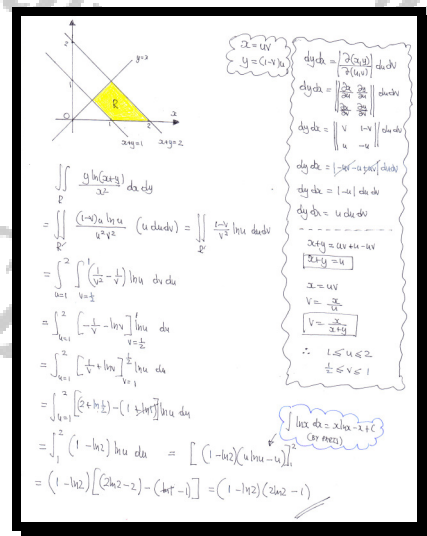 2
y=x
1
R
x
0
1
2
x+y=1
x+y=2
x = uv
y = (1-v)u
dy dx = |∂(x,y)/∂(u,v)| du dv
dy dx = ||∂x/∂u ∂y/∂u|| du dv
||∂x/∂v ∂y/∂v||
dy dx = ||v 1-v|| du dv
||u -u||
dy dx = |-uv - u + uv| du dv
dy dx = |-u| du dv
dy dx = u du dv
x+y = uv + u - uv
x+y = u
x = uv
v = x/u
v = x/(x+y)
∴ 1 ≤ u ≤ 2
1/2 ≤ v ≤ 1
∬_R y ln(x+y)/x² dx dy
= ∬_R' (1-v)u ln u/(u²v²) (u du dv) = ∬_R' (1-v)/v² ln u du dv
= ∫_{u=1}^{2} ∫_{v=1/2}^{1} (1/v² - 1/v) ln u dv du
= ∫_{u=1}^{2} [-1/v - ln v]_{v=1/2}^{1} ln u du
= ∫_{u=1}^{2} [1/v + ln v]_{v=1}^{1/2} ln u du
= ∫_{u=1}^{2} [(2 + ln 1/2) - (1 + ln 1)] ln u du
∫ ln x dx = x ln x - x + C
(BY PARTS)
= ∫_{1}^{2} (1 - ln2) ln u du = [(1 - ln2)(u ln u - u)]_{1}^{2}
= (1 - ln2)[(2ln2 - 2) - (ln1 - 1)] = (1 - ln2)(2ln2 - 1)